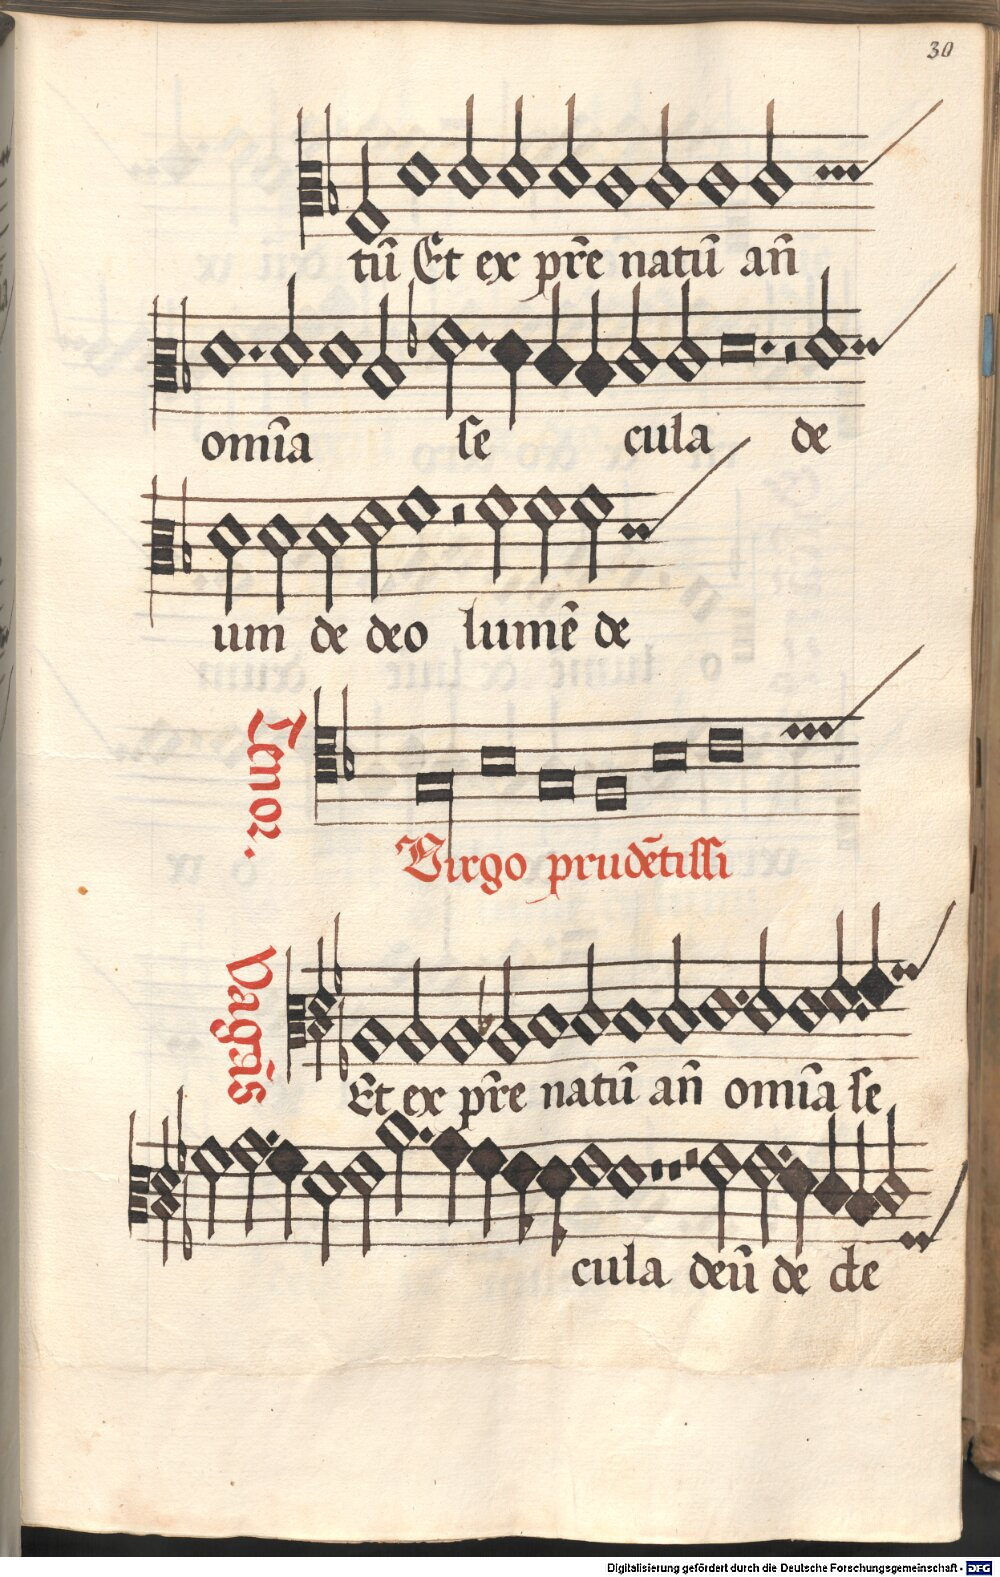 30
tū Et ex pr̄e natū an̄
omīa se cula de
um de deo lumē de
Tenor.
Virgo prudētissi
Vagās
Et ex pr̄e natū an̄ omīa se
cula deū de de
Digitalisierung gefördert durch die Deutsche Forschungsgemeinschaft - DFG